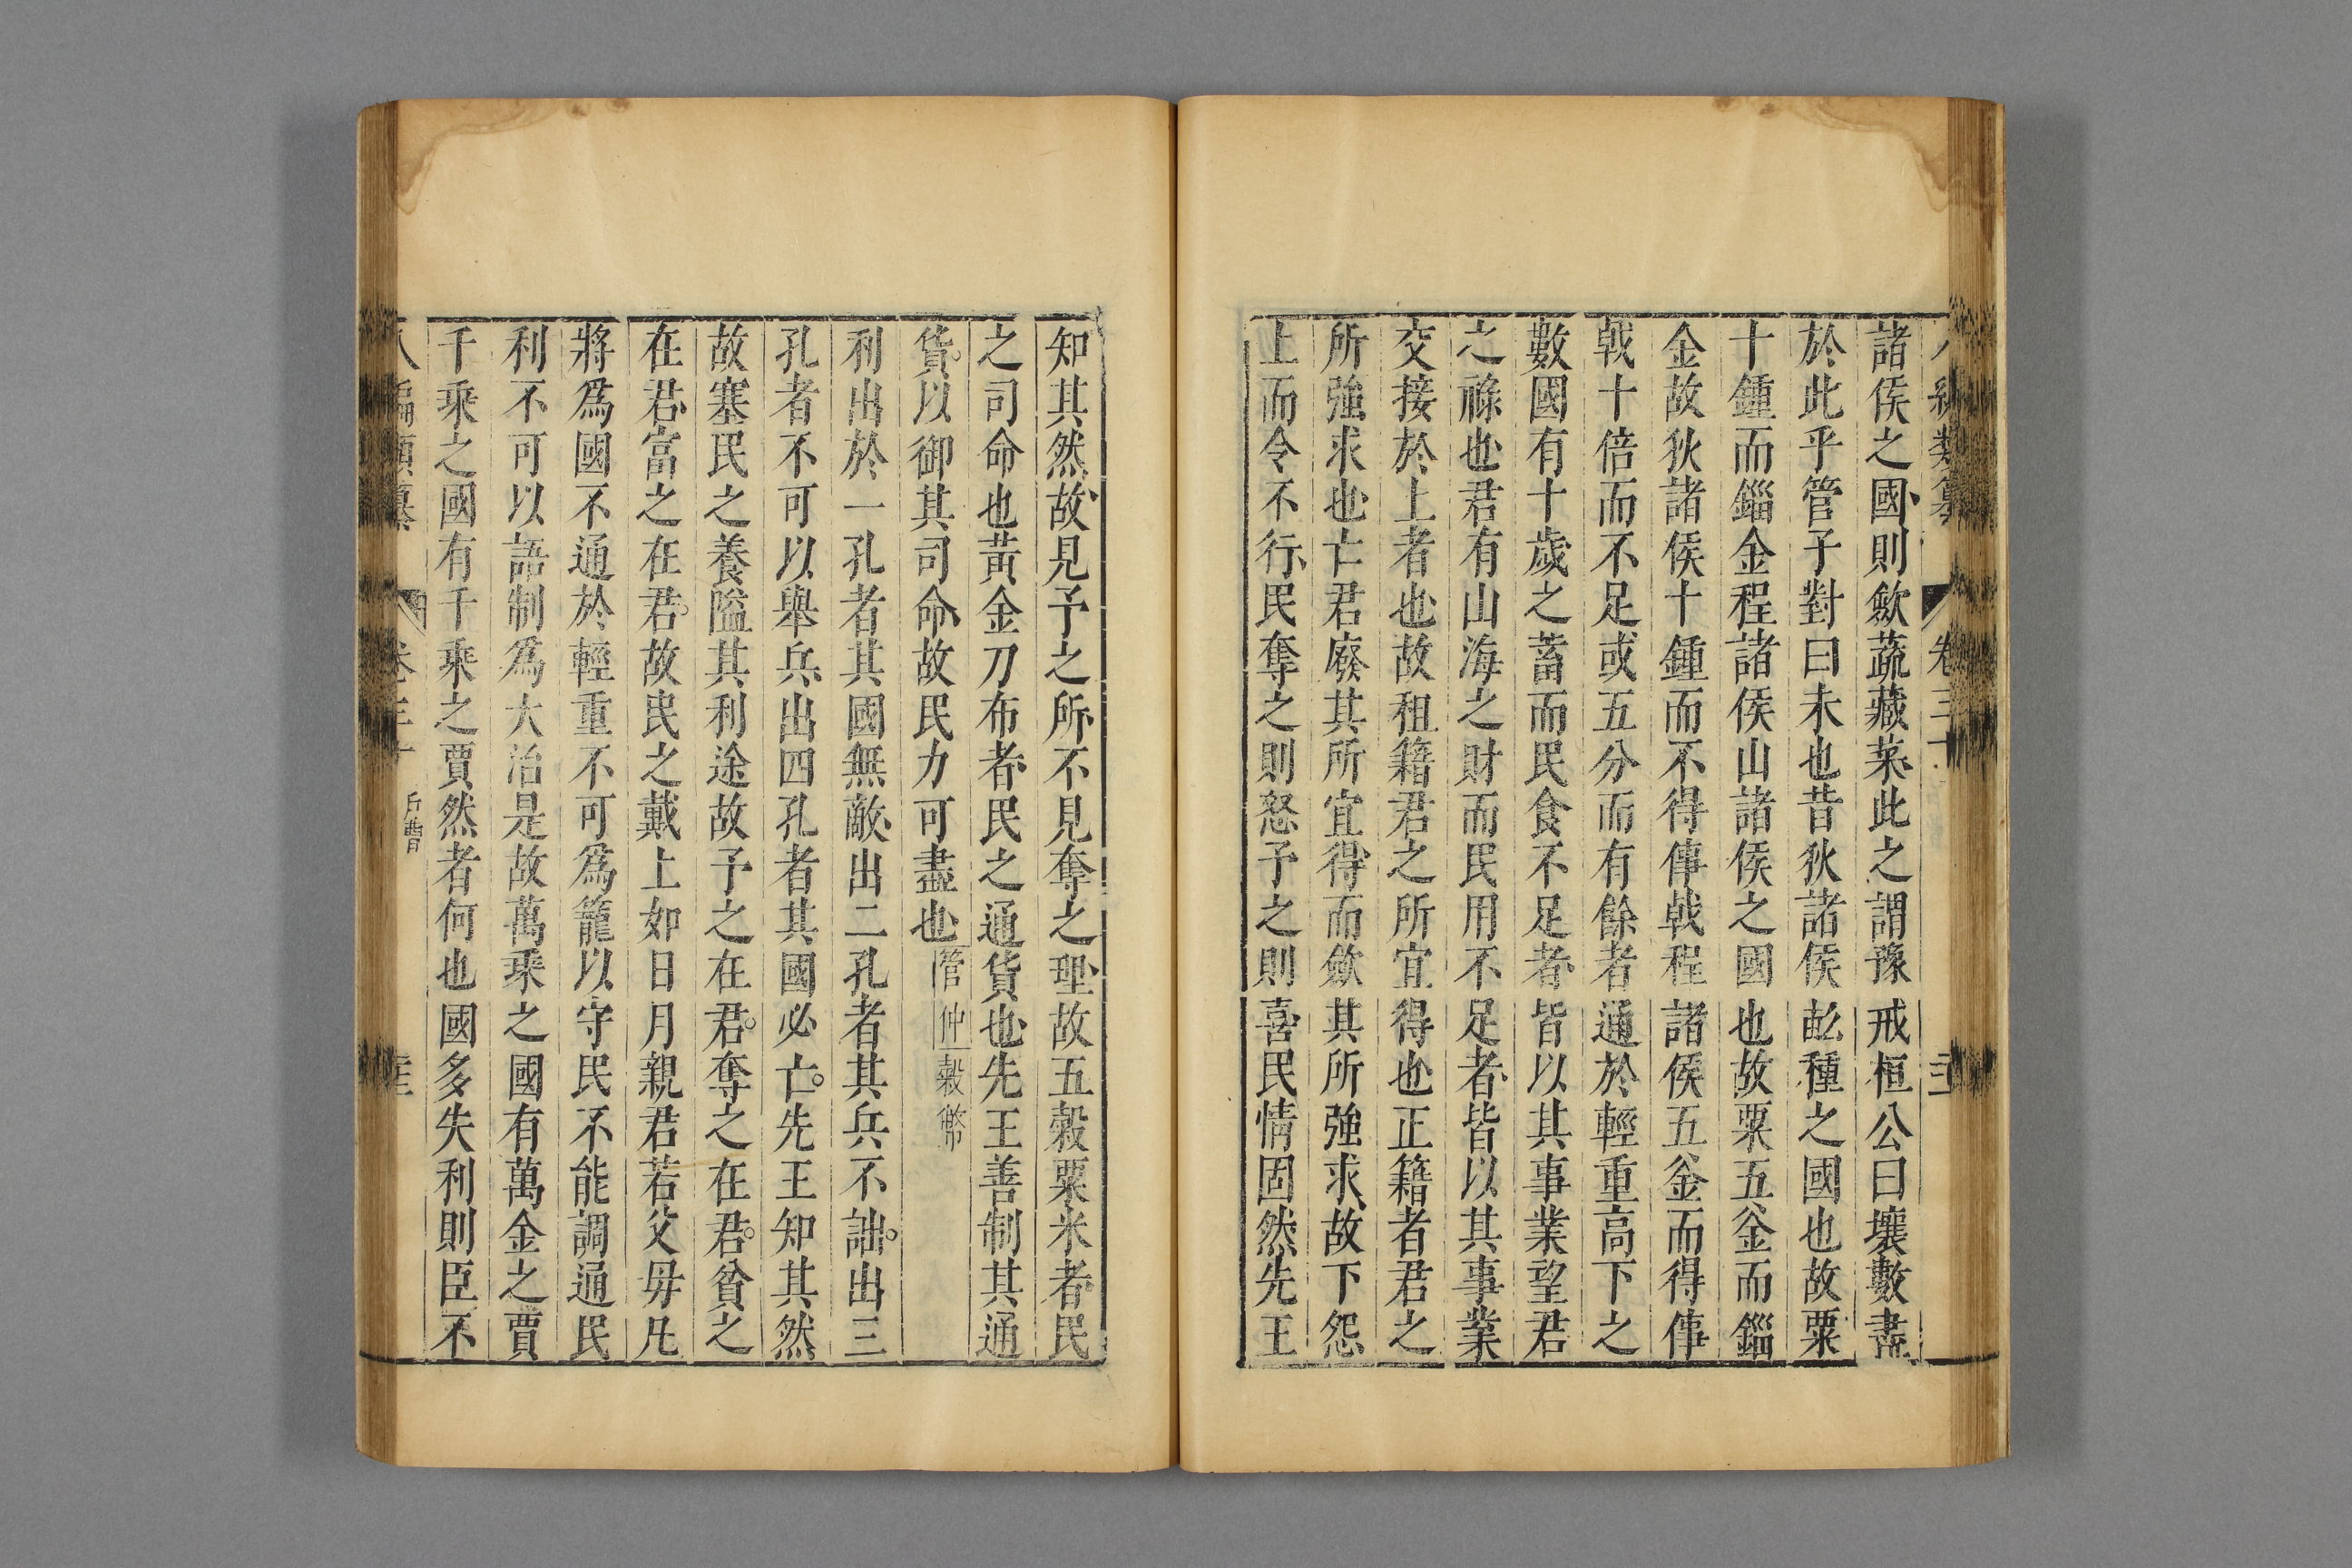 諸侯之國則歛蔬藏菜此之謂豫戒桓公曰壤數盡
於此乎管子對曰未也昔狄諸侯畝種之國也故粟
十鍾而錙金程諸侯山諸侯之國也故粟五釡而錙
金故狄諸侯十鍾而不得倳戟程諸侯五釡而得倳
戟十倍而不足或五分而有餘者通於輕重高下之
數國有十歲之蓄而民食不足者皆以其事業望君
之祿也君有山海之財而民用不足者皆以其事業
交接於上者也故租籍君之所宜得也正籍者君之
所強求也亡君廢其所宜得而歛其所強求故下怨
上而令不行民奪之則怒予之則喜民情固然先王
知其然故見予之所不見奪之理故五穀粟米者民
之司命也黃金刀布者民之通貨也先王善制其通
貨以御其司命故民力可盡也管仲穀幣
利出於一孔者其國無敵出二孔者其兵不詘出三
孔者不可以舉兵出四孔者其國必亡先王知其然
故塞民之養隘其利途故予之在君奪之在君貧之
在君富之在君故民之戴上如日月親君若父母凡
將爲國不通於輕重不可爲籠以守民不能調通民
利不可以語制爲大治是故萬乘之國有萬金之賈
千乘之國有千乘之賈然者何也國多失利則臣不